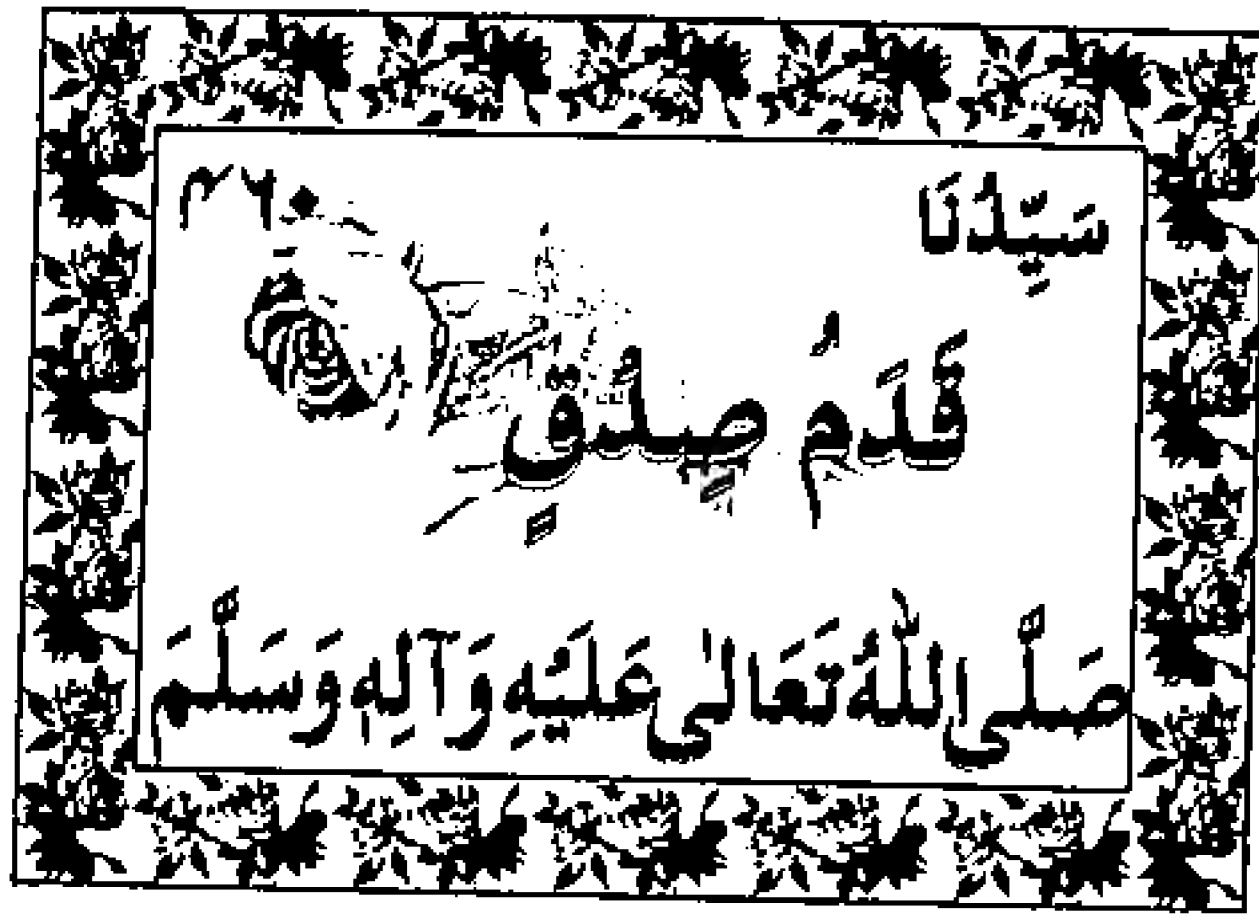 سَيِّدُنَا
۴۶۰
قَدَمُ صِدْقٍ
صَلَّى اللّٰهُ تَعَالٰى عَلَيْهِ وَآلِهٖ وَسَلَّمَ